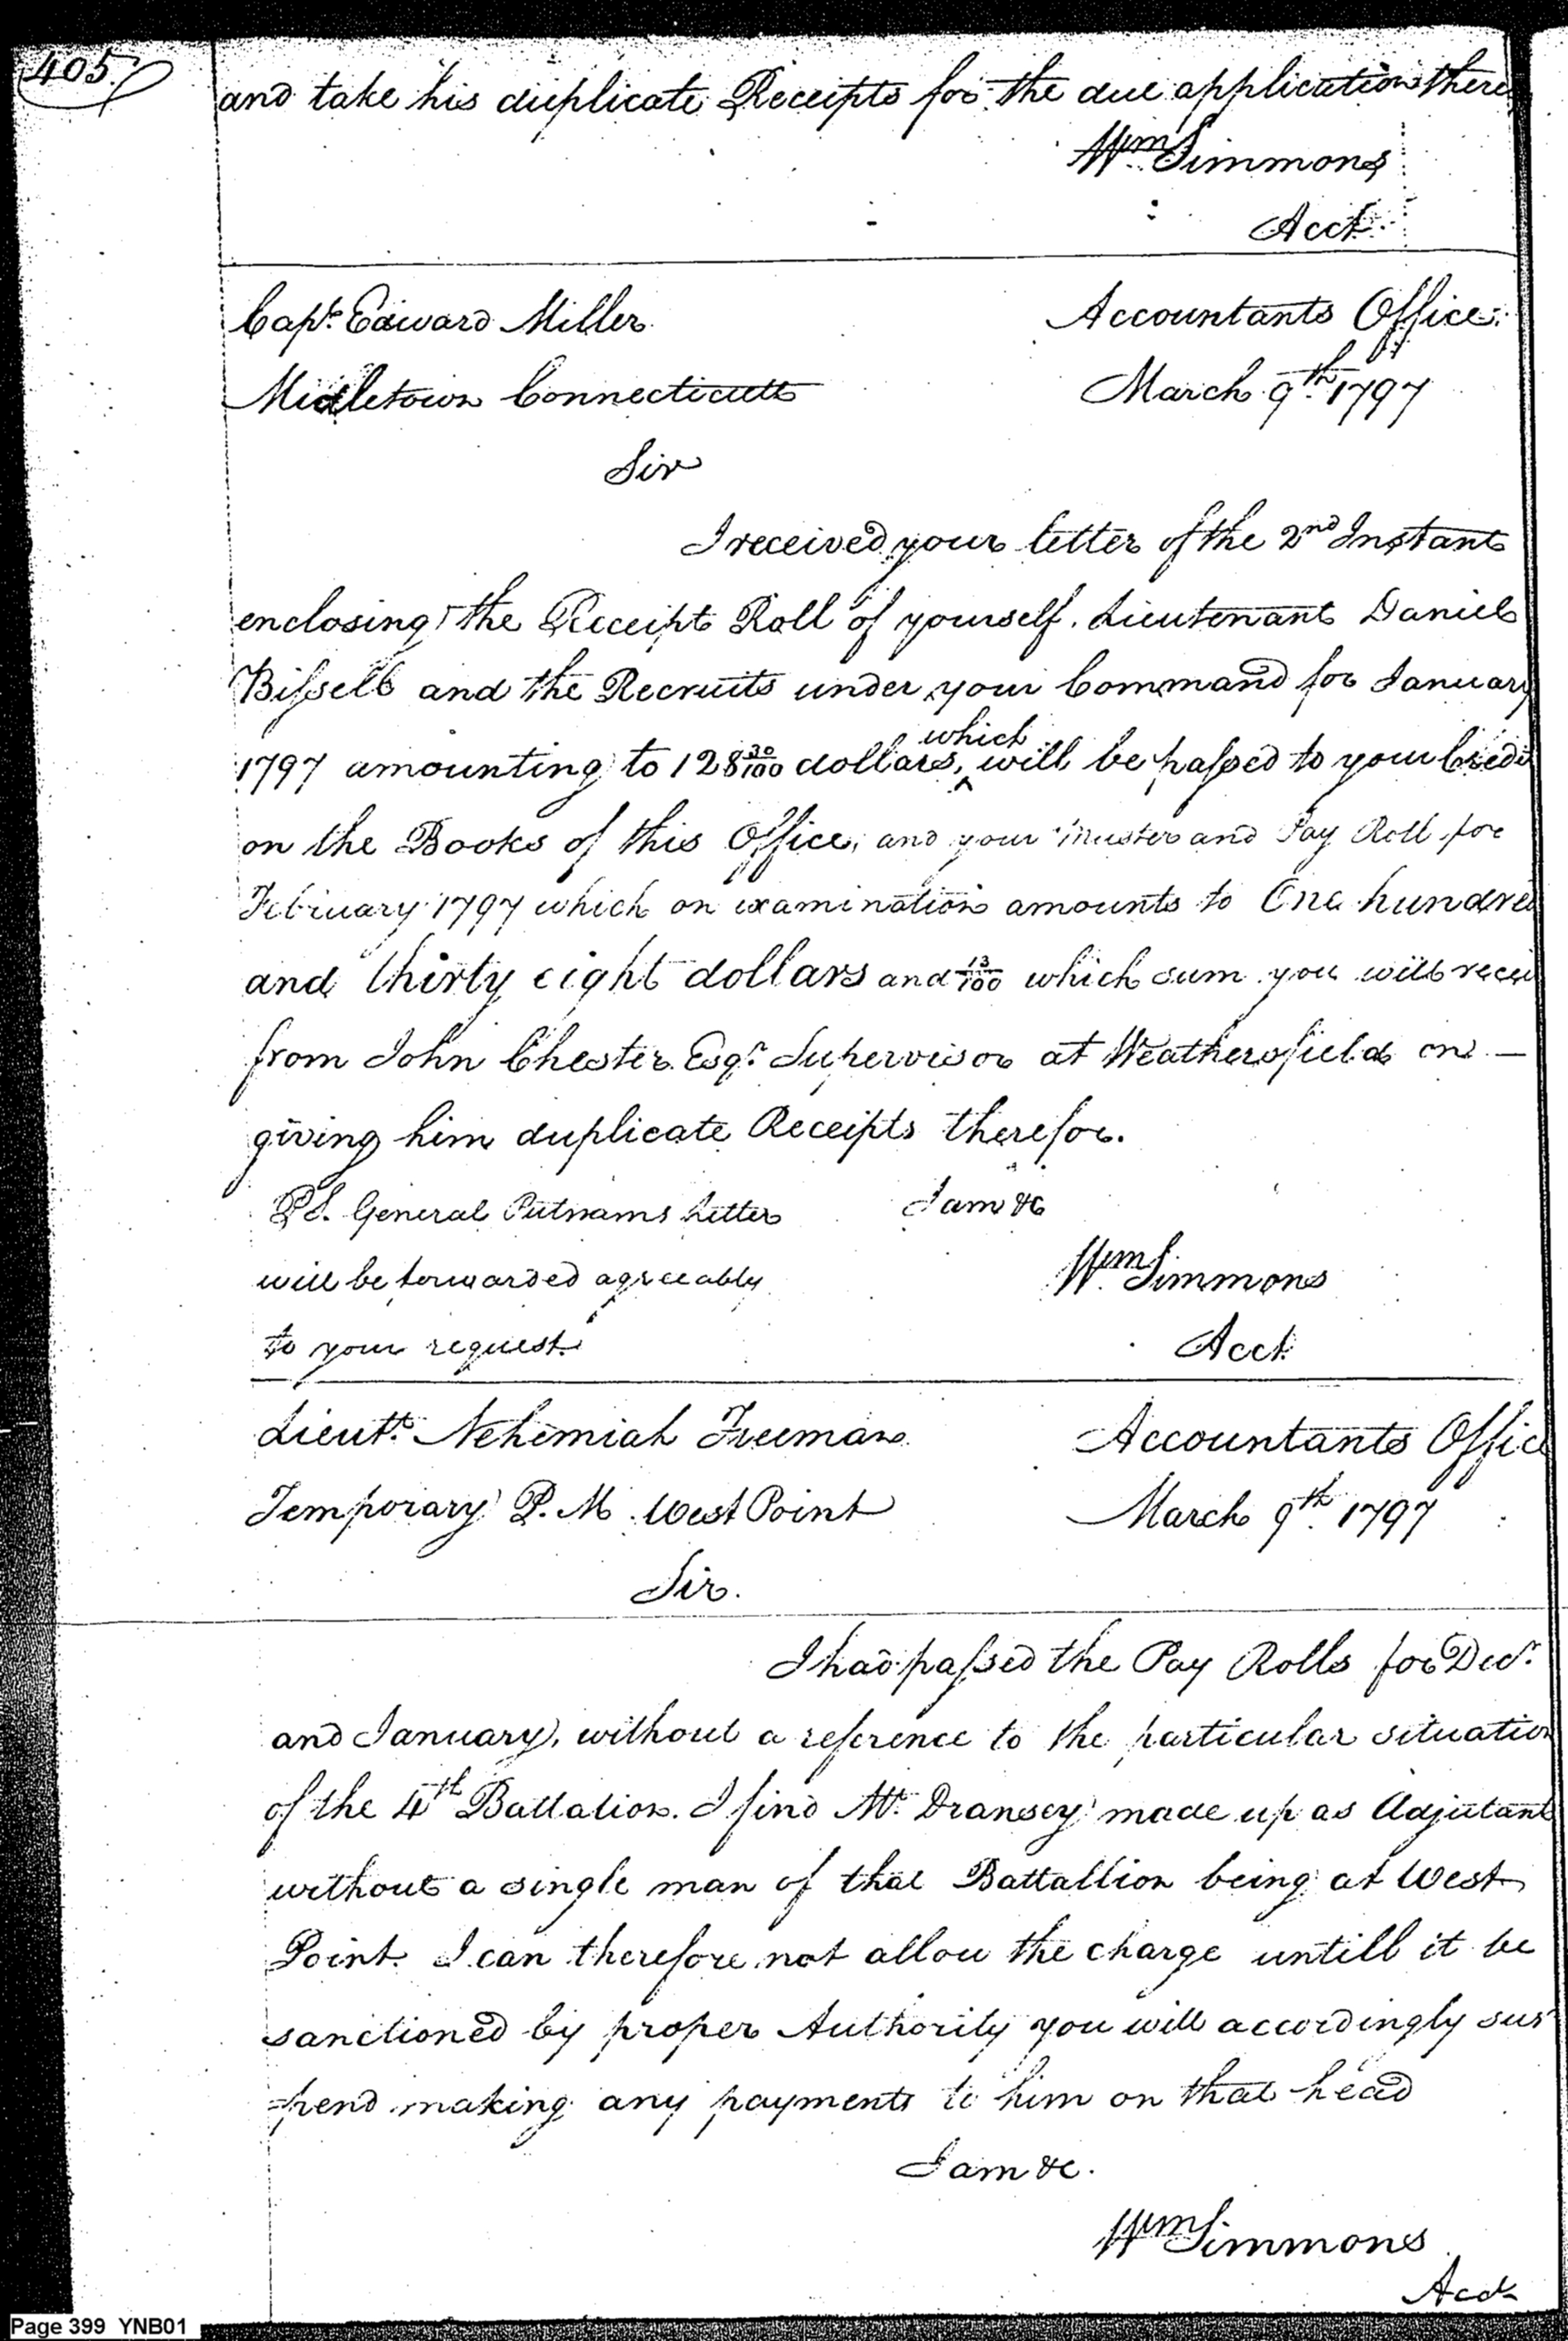 405
and take his duplicate Receipts for the due application there
Wm Simmons
Acct.
Capt. Edward Miller Accountants Office
Midletown Connecticutt March 9th. 1797
Sir
I received your letter of the 2nd Instant
enclosing the Receipt Roll of yourself. Lieutenant Daniel
Bissell and the Recruits under your Command for January
1797 amounting to 128 30/100 dollars, which will be passed to your Credi
on the Books of this Office, and your Muster and Pay Roll for
February 1797 which on examination amounts to One hundred
and thirty eight dollars and 13/100 which sum you will recei
from John Chester Esqr. Supervisor at Weathersfield on —
giving him duplicate Receipts therefor.
PS. General Putnams Letter I am &c
will be forwarded agreeably Wm. Simmons
to your request. Acct.
Lieutt. Nehemiah Freeman Accountants Office
Temporary P. M. West Point March 9th. 1797
Sir.
I had passed the Pay Rolls for Decr.
and January, without a reference to the particular situation
of the 4th Battalion. I find Mr. Dransey made up as Adjutant
without a single man of that Battallion being at West
Point. I can therefore not allow the charge untill it be
sanctioned by proper Authority you will accordingly sus
=pend making any payments to him on that head
I am &c.
Wm Simmons
Acct
Page 399 YNB01